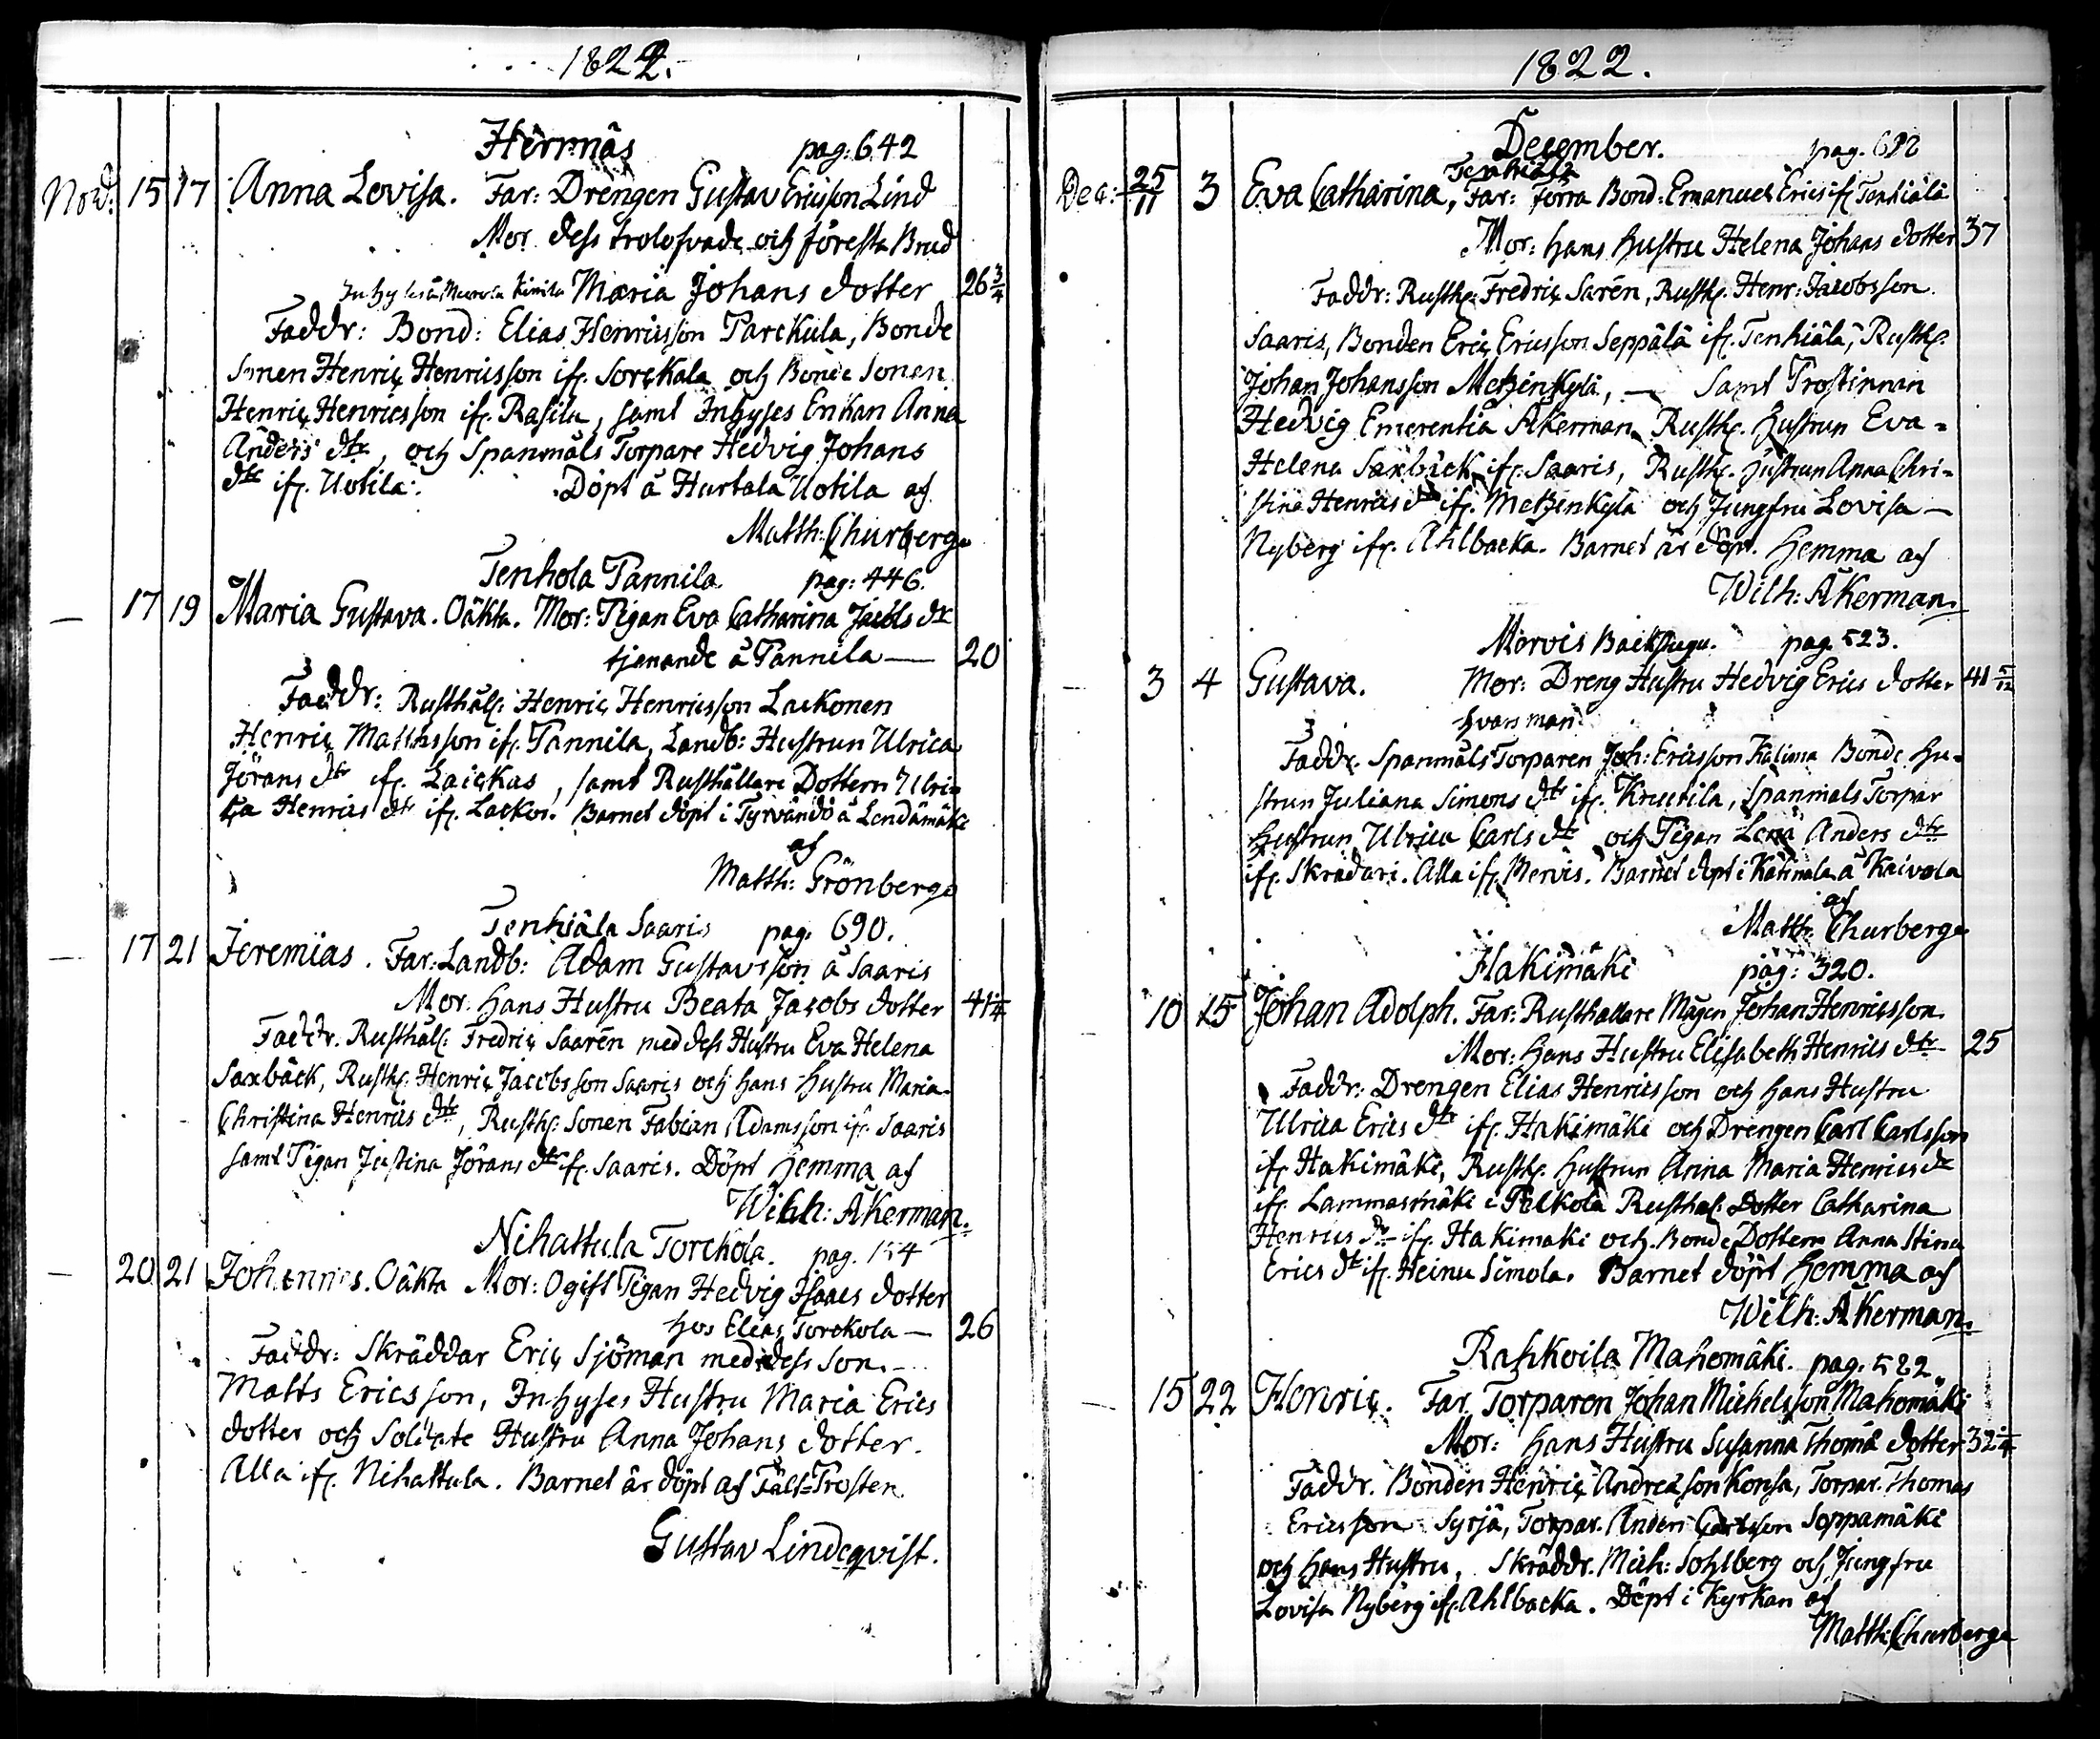 1822.
Herrnäs pag: 642
Nov: 15 17 Anna Lovisa. Far: Drengen Gustav Ericsson Lind
Mor dess trolofvade och förestta Brud
Inhyses å Kimila Maria Johans dotter 26 3/4
Faddr: Bond: Elias Henricsson Parckula, Bonde
Sonen Henric Henricsson ifr. Sorckala och Bonde Sonen
Henric Henricsson ifr. Rasila, samt Inhyses Enkan Anna
Anders dtr, och Spanmåls Torpare Hedvig Johans
dtr ifr. Uotila. Döpt å Hurtala Uotila af
Matth: Churberg
Tenhola Pannila pag: 446.
— 17 19 Maria Gustava. Oäkta. Mor: Pigan Eva Catharina Jacobs dr
tjenande å Pannila — 20
Faddr: Rusthåls: Henric Henricsson Lackonen
Henric Mattsson ifr. Pannila, Landb: Hustrun Ulrica
Jörans dtr ifr. Laickas, samt Rusthållare Dottern Ulri-
ca Henrics dtr ifr. Lackos. Barnet döpt i Tyrvändö å Lendämäki
af
Matth: Grönberg
Tenhiälä Saaris pag. 690.
— 17 21 Jeremias. Far: Landb: Adam Gustavsson å Saaris
Mor: hans Hustru Beata Jacobs dotter 41 1/4
Faddr. Rusthåls: Fredric Saarén med dess Hustru Eva Helena
Saxbäck, Rusth: Henric Jacobsson Saaris och hans Hustru Maria
Christina Henrics dtr, Rusth: Sonen Fabian Adamsson ifr. Saaris
samt Pigan Justina Jörans dtr ifr. Saaris. Döpt hemma af
Wilh: Åkerman.
Nihattula Torckola. pag. 154
— 20 21 Johannes. Oäkta Mor: Ogift Pigan Hedvig Isaacs dotter
hos Elias Torckola — 26
Faddr: Skräddar Eric Sjöman med dess Son
Matts Ericsson, Inhyses Hustru Maria Erics
dotter och Soldate Hustru Anna Johans dotter.
Alla ifr. Nihattula. Barnet är döpt af Fält-Prosten
Gustav Lindeqvist.
1822.
December. pag. 692
Tenhiälä
Dec: 25/11 3 Eva Catharina, Far: förra Bond: Emanuel Erics ifr. Tenhiälä
Mor: hans Hustru Helena Johans dotter 37
Faddr: Rusth: Fredric Sarén, Rusth: Henr: Jacobsson
Saaris, Bonden Eric Ericsson Seppälä ifr. Tenhiälä, Rusth:
Johan Johansson Metzenkylä, — Samt Prostinnan
Hedvig Emerentia Åkerman Rusth: Hustrun Eva
Helena Saxbäck ifr. Saaris, Rusth: Hustrun Anna Chri-
stina Henrics dtr ifr. Metzenkylä och Jungfru Lovisa —
Nyberg ifr. Ahlbacka. Barnet är döpt hemma af
Wilh: Åkerman
Mervis Backstugu. pag. 523.
— 3 4 Gustava. Mor: Dreng Hustru Hedvig Erics dotter 41 5/12
hvars man
Faddr. Spanmåls Torparen Joh: Ericsson Bonde Hu-
strun Juliana Simons dtr ifr. Krutila, Spanmåls Torpar
Hustrun Ulrica Carls dtr och Pigan Lena Anders dtr
ifr. Skrädari. Alla ifr. Mervis. Barnet döpt i Kätinala å Kaivola
af
Matth. Churberg
Hakimäki pag: 320.
— 10 15 Johan Adolph. Far: Rusthållare Mågen Johan Henricsson
Mor: hans Hustru Elisabeth Henrics dtr 25
Faddr: Drengen Elias Henricsson och hans Hustru
Ulrica Erics dtr ifr. Hakimäki och Drengen Carl Carlsson
ifr Hakimäki, Rusth: Hustrun Anna Maria Henrics dr
ifr. Lammasmäki i Pelkola Rusthål: Dotter Catharina
Henrics dr ifr. Hakimäki och Bonde Dottern Anna Stina
Erics dtr ifr. Heinu Simola. Barnet döpt hemma af
Wilh: Åkerman.
Rahkoila Mahomäki. pag. 522
— 15 22 Henric. Far Torparen Johan Michelsson Mahomäki
Mor: hans Hustru Susanna Thoma dotter 32 1/4
Faddr. Bonden Henric Andreasson Konsa, Torpar. Thomas
Ericsson Syrjä, Torpar. Anders Carlsson Soppamäki
och hans Hustru, Skräddr. Mich: Sohlberg och Jungfru
Lovisa Nyberg ifr. Ahlbacka. Döpt i Kyrkan af
Matth: Churberg